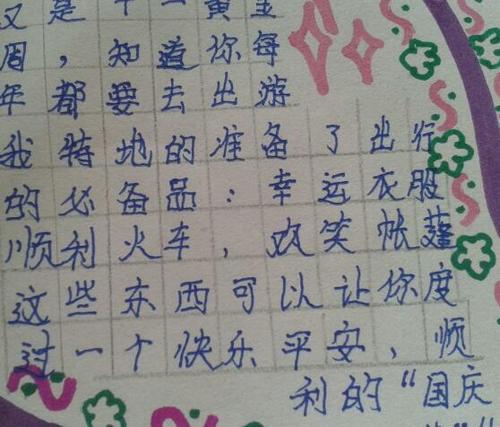 又是十一黄金
周，知道你每
年都要去出游
我特地的准备了出行
的必备品：幸运衣服
顺利火车，欢笑帐蓬
这些东西可以让你度
过一个快乐平安，顺
利的“国庆